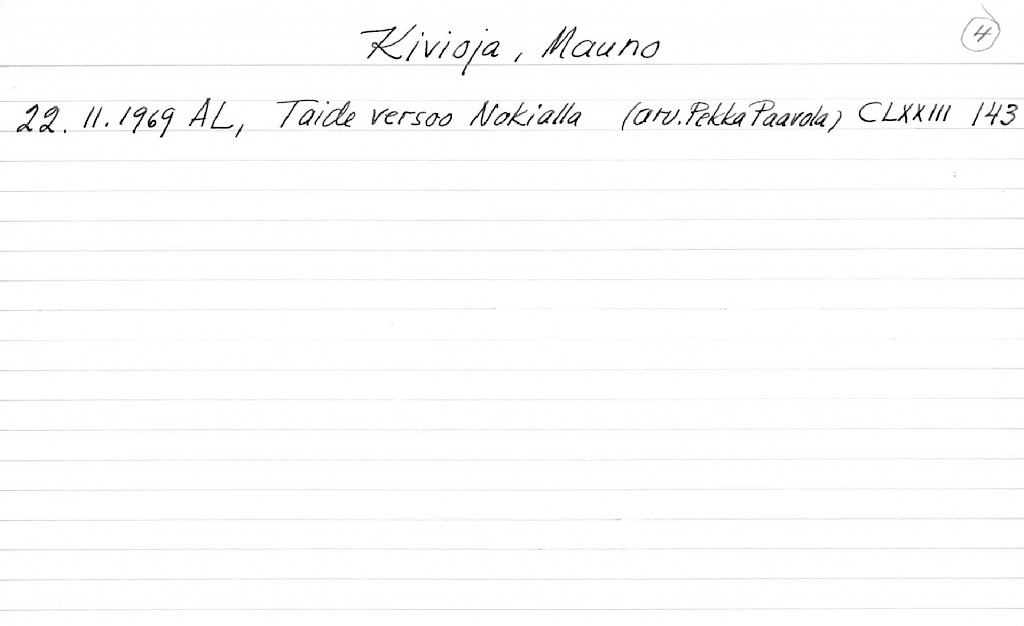 Kivioja, Mauno
4
22.11.1969 AL, Taide versoo Nokialla (arv. Pekka Paavola) CLXXIII 143